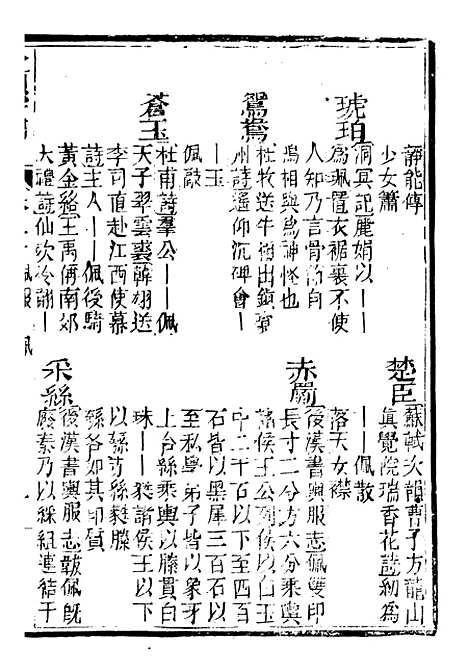 靜能傳
少女簫
琥珀
洞冥記麗娟以——
爲珮置衣裾裏不使
人知乃言骨節自
鳴相與爲神怪也
鴛鴦
杜牧送牛相出鎮襄
州詩遥仰沉碑會—
—玉
佩敲
蒼玉
杜甫詩羣公——佩
天子翠雲裘韓翃送
李司直赴江西使幕
詩主人——佩後騎
黃金絡王禹偁南郊
大禮詩仙吹冷翻—
楚臣
蘇軾次韻曹子方龍山
眞覺院瑞香花詩紉爲
——佩散
落天女襟
赤罽
後漢書輿服志佩雙印
長寸二分方六分乘輿
諸侯王公列侯以白玉
中二千石以下至四百
石皆以黑犀二百石以
至私學弟子皆以象牙
上合絲乘輿以縢貫白
珠——蕤諸侯王以下
以綔赤絲蕤縢
綔各如其印質
采絲
後漢書輿服志韍佩旣
廢秦乃以綵組連結于